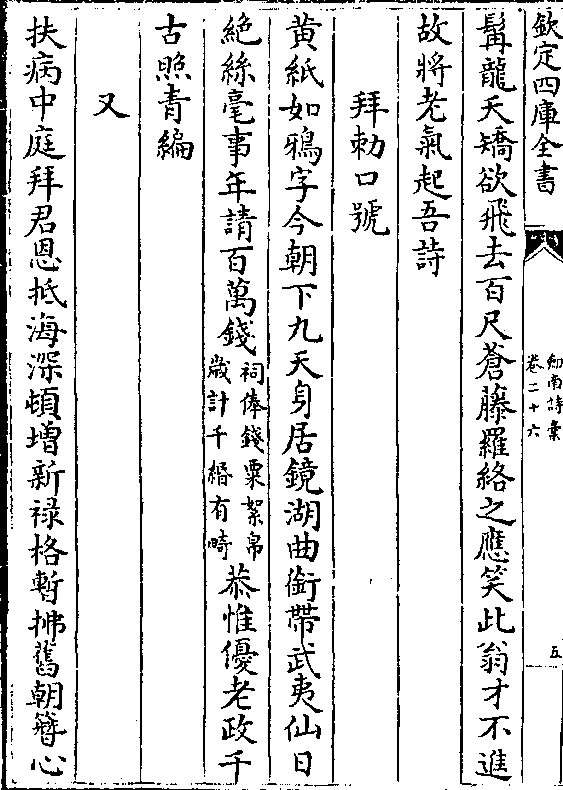 欽定四庫全書
劍南詩稾
卷二十六
五
髯龍夭矯欲飛去百尺蒼藤羅絡之應笑此翁才不進
故將老氣起吾詩
拜勅口號
黄紙如鴉字今朝下九天身居鏡湖曲銜帶武夷仙日
絶絲毫事年請百萬錢祠俸錢粟絮帛
歳計千緡有畸恭惟優老政千
古照青編
又
扶病中庭拜君恩抵海深頓増新禄格暫拂舊朝簪心